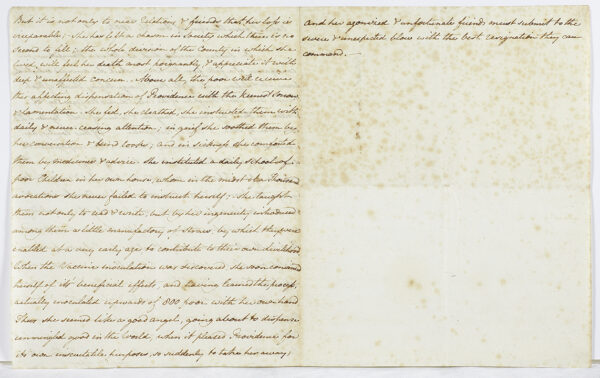 But it is not only to near relations & friends that her loss is
irreparable; She has left a chasm in Society which there is no
second to fill; the whole division of the County in which she
lived, will feel her death most poignantly, & appreciate it with
deep & unaffected concern. Above all, the poor will receive
this afflicting dispensation of Providence with the keenest Sorrow
& lamentation. She fed, she cloathed, she instructed them with
daily & never ceasing attention; in grief she soothed them by
her conversation & kind looks; and in sickness she comforted
them by medicines & advice. She instituted a daily school of
poor Children in her own house, whom in the midst of a thousand
avocations she never failed to instruct herself; She taught
them not only to read & write, but by her ingenuity introduced
among them a little manufactory of Straw, by which they were
enabled at a very early age to contribute to their own livelihood
When the Vaccine inoculation was discovered, she soon convinced
herself of its beneficial effects, and having learned the process,
actually inoculated upwards of 800 poor with her own hand
Thus she seemed like a good angel, going about to dispense
unmingled good in the World, when it pleased Providence for
its own inscrutable purposes, so suddenly to take her away;
And her agonized & unfortunate friends must submit to the
severe & unexpected blow with the best resignation they can
command.